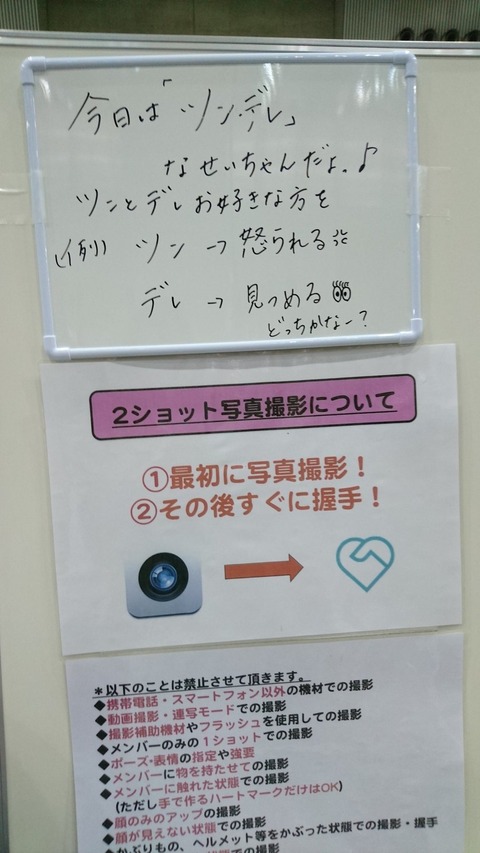 今日は「ツン・デレ」
なせいちゃんだよ。♪
ツンとデレお好きな方を
(例) ツン → 怒られる💢
デレ → 見つめる👀
どっちかなー?
2ショット写真撮影について
①最初に写真撮影！
②その後すぐに握手！
＊以下のことは禁止させて頂きます。
◆携帯電話・スマートフォン以外の機材での撮影
◆動画撮影・連写モードでの撮影
◆撮影補助機材やフラッシュを使用しての撮影
◆メンバーのみの1ショットでの撮影
◆ポーズ・表情の指定や強要
◆メンバーに物を持たせての撮影
◆メンバーに触れた状態での撮影
(ただし手で作るハートマークだけはOK)
◆顔のみのアップの撮影
◆顔が見えない状態での撮影
◆かぶりもの、ヘルメット等をかぶった状態での撮影・握手